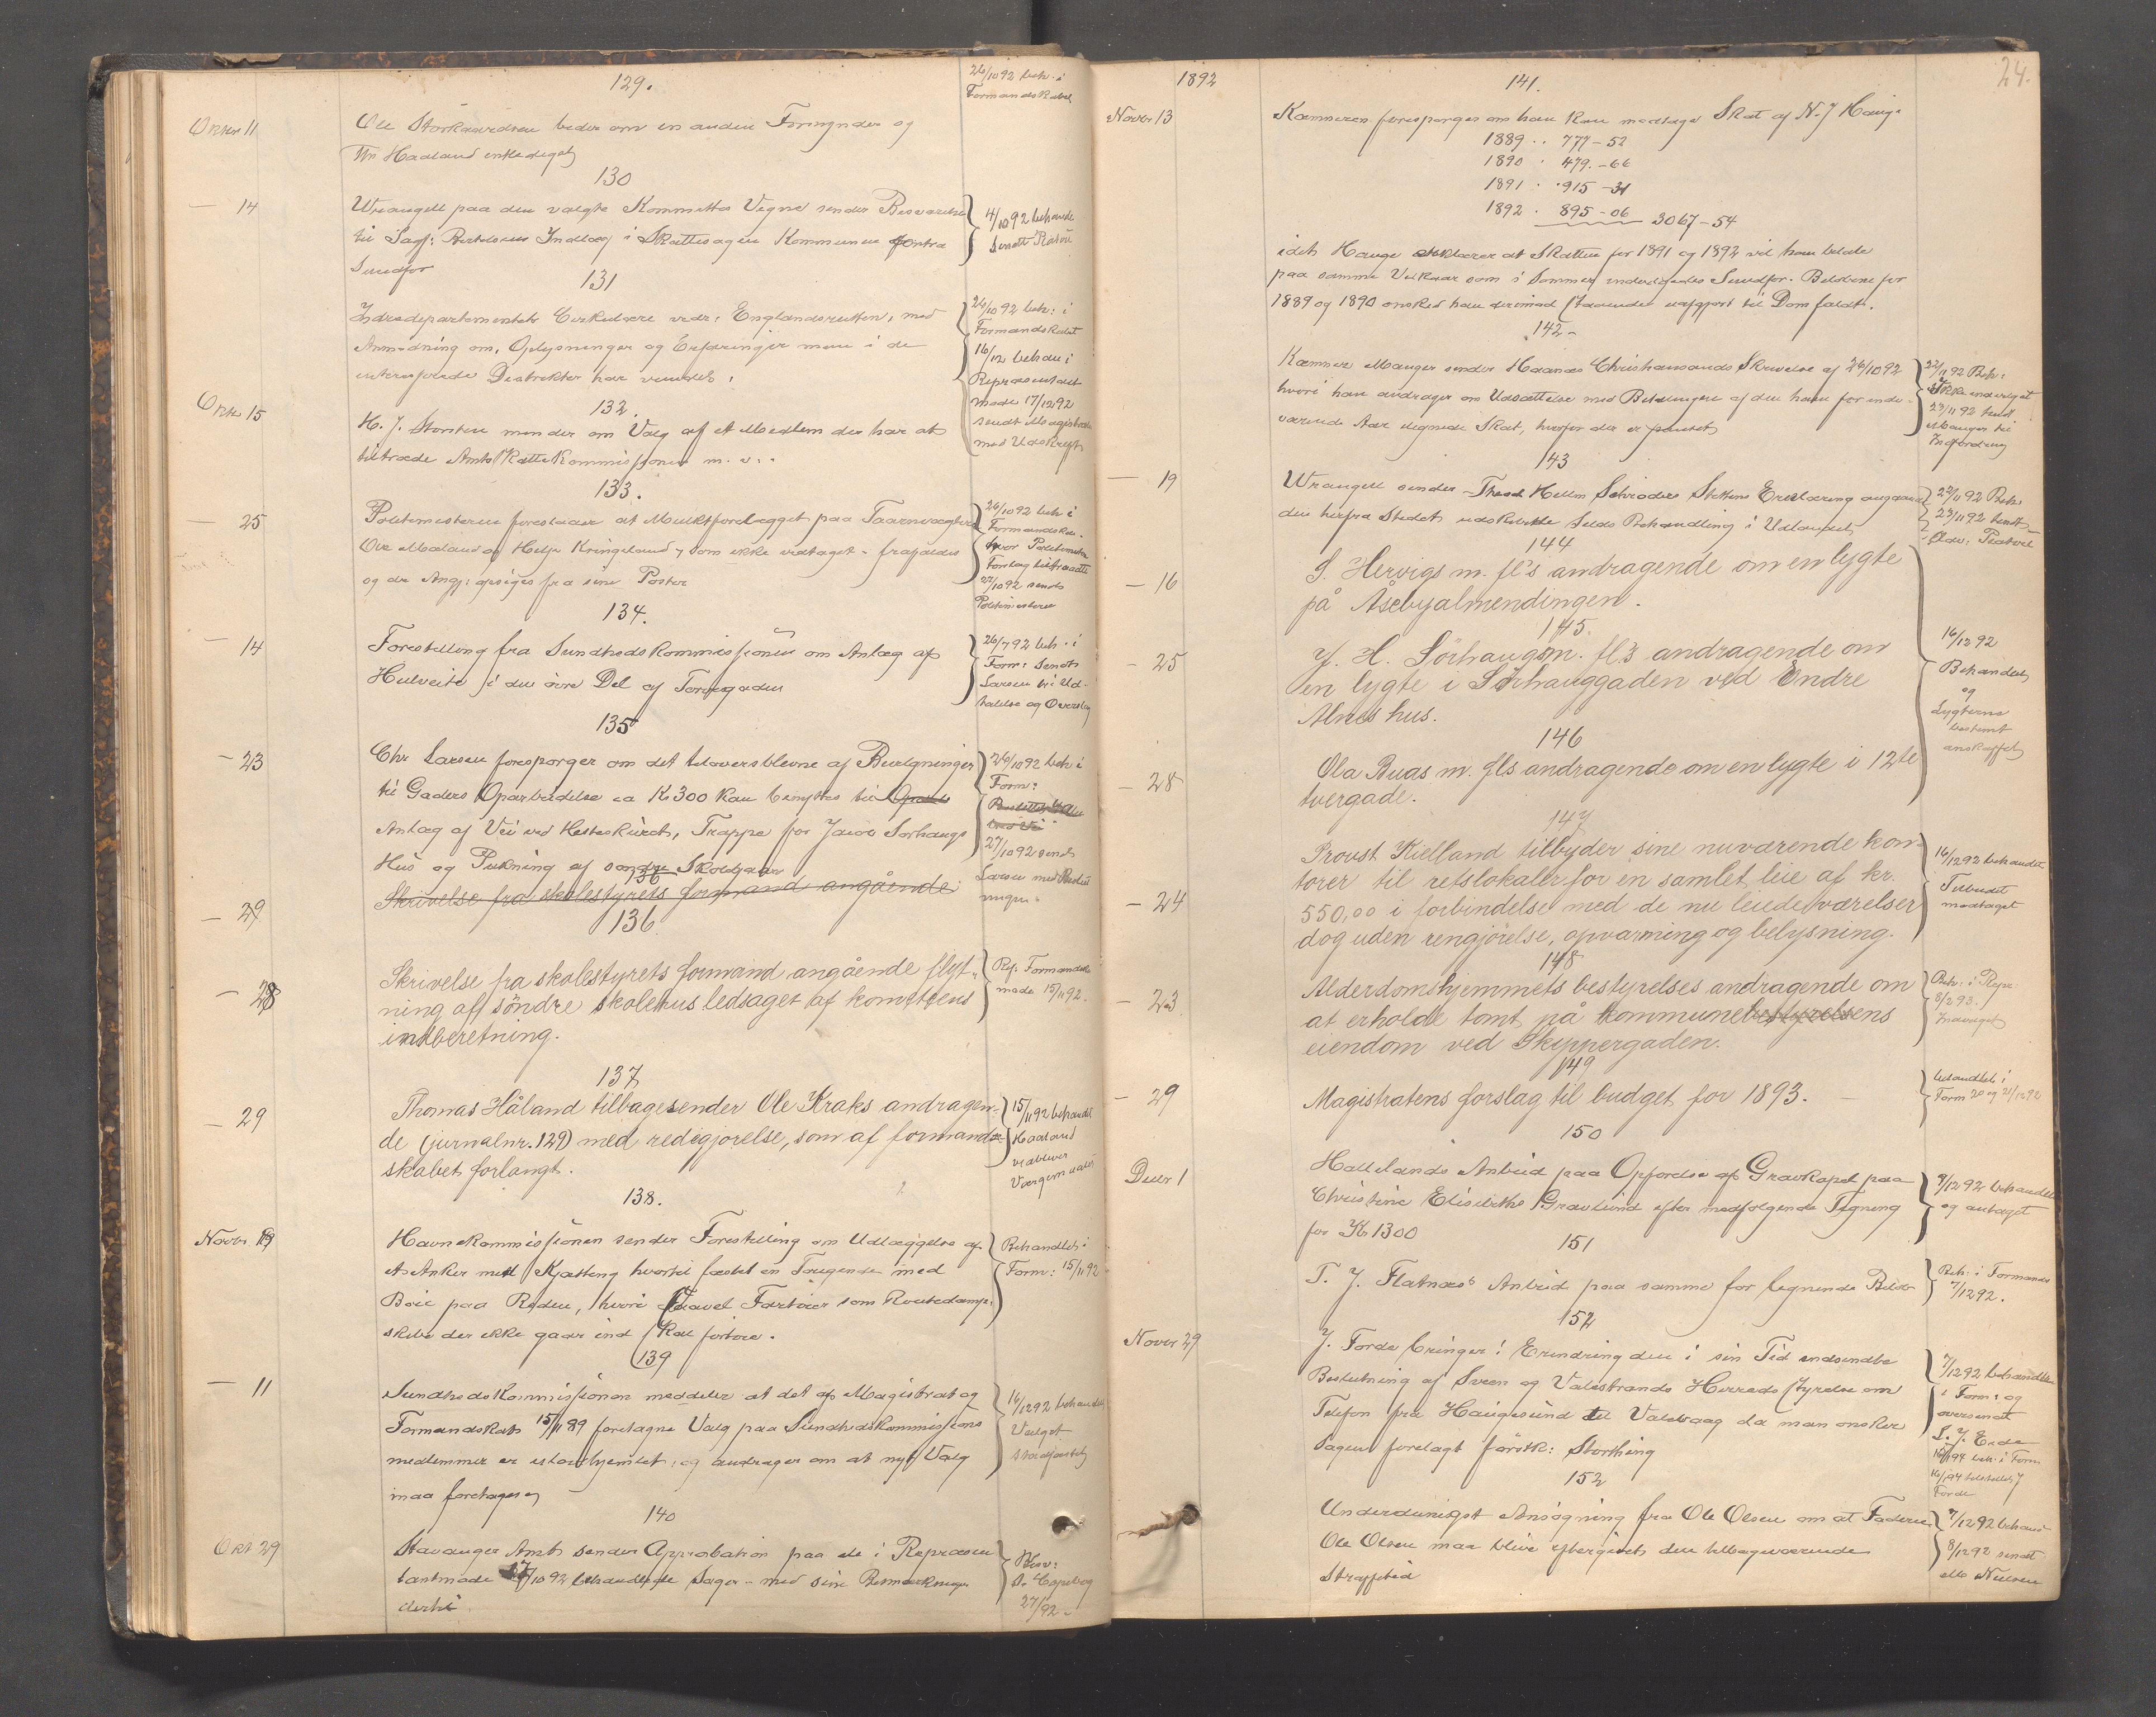 129.
26/10 92 beh. i
Formandskabet
Oktbr 11
Ole Storkaardsen beder om en anden Formynder og
Haaland entlediget
130
— 14
Wrangell paa den valgte Kommittes Vegne sender Besvarelse
til Sagf: Bertelsens Indlæg i Skattesagen Kommunen contra
Sundfør
4/10 92 behand
sendt
131
Indredepartementets Cirkulære vedr: Englandsruten, med
Anmodning om, Oplysninger og Erfaringer man i de
interesserede Distrikter har vundet.
26/10 92 beh: i
Formandskabet
16/12 behan i
Repræsentant
møde 17/12 92
sendt Magistraten
med Udskrift
132.
Oktbr 15
H. J. Storsten minder om Valg af et Medlem der har at
tiltræde Amts Skattekommissionen m. v..
133.
— 25
Politimesteren foreslaaer at Mulktforelægget paa Taarnvægterne
Ole Mæland og Helje Kringeland, som ikke vedtaget - frafaldes
og de Angj: opsiges fra sine Poster
26/10 92 beh i
Formandska-
hvor Politimestr
Forslag tiltraadte
27/10 92 sendt
Politimesteren
134.
— 14
Forestilling fra Sundhedskommissionen om Anlæg af
Hulveite i den øvre Del af Torvegaden
26/7 92 beh. i
Form: Sendt
Larsen til Ud-
talelse og Overslag
135
— 23
Chr Larsen foresporger om det tiloversblevne af Bevilgninger
til Gaders Oparbeidelse ca Kr 300 kan benyttes til
Anlæg af Vei ved Hesteskuret, Trappe for Jacob Sørhaugs
Hus og Pukning af søndre Skolegaar
26/10 92 beh i
Form:
27/10 92 sendt
Larsen med
136
— 29
Skrivelse fra skolestyrets formand angående
136
— 28
Skrivelse fra skolestyrets formand angående flyt-
ning af søndre skolehus ledsaget af komiteens
indberetning.
Ref: Formandsk
møde 15/11 92.
137
— 29
Thomas Håland tilbagesender Ole Kraks andragen-
de (jurnalnr. 129) med redegjørelse, som af formand-
skabet forlangt.
15/11 92 behandl
Haaland
vedbliver
138.
Novbr 19
Havnekommissionen sender Forestilling om Udlæggelse af
et Anker med Kjætting hvortil fæstet en Fangende med
Bøie paa Reden, hvori saavel Fartøier som Routedamp-
skibe der ikke gaar ind skal fortøie.
Behandlet i
Form: 15/11 92
139
— 11
Sundhedskommissionen meddeler at det af Magistrat og
Formandskab 15/11 89 foretagne Valg paa Sundhedskommissions
medlemmer er ustadhjemlet, og andrager om at nyt Valg
maa foretages
16/12 92 behandl
Valget
stadfæstet
140
Okt 29
Stavanger Amt sender Approbation paa de i Repræsen
tantmøde 27/10 92 behandlede Sager - med sine Bemærkninger
dertil
Besv:
27/92 -
1892
24.
141.
Novbr 13
Kæmneren foresporger om han kan modtage Skat af N. J Hauge
1889 .. 777 - 52
1890 . 479. - 66
1891 . . 915 - 31
1892 . 895 - 06 3067 - 54
idet Hauge erklærer at Skatten for 1891 og 1892 vil han betale
paa samme Vilkaar som i Sommer underhandledes Sundfør. Beløbene for
1889 og 1890 ønsker han derimod staaende uafgjort til Dom faldt.
142 -
Kæmner Mauger sender Haanæs Christiansands Skrivelse af 26/10 92
hvori han andrager om Udsættelse med Betalingen af den ham for inde-
værende Aar lignede Skat, hvorfor der er pantet
22/11 92 Beh:
Ikke indvilget
23/11 92 sendt
Mauger til
Indfordring
143
— 19
Wrangell sender Theod Hellm Schrøder Stettens Erklæring angaaende
den herfra Stedet udskibede Silds Behandling i Udlandet
22/11 92 Beh:
23/11 92 sendt
144
— 16
S. Hervigs m. fl's andragende om en lygte
på Åsebyalmendingen.
145.
— 25
J. H. Sørhaugs m. fl's andragende om
en lygte i Sørhauggaden ved Endre
Alnes hus.
16/12 92
Behandlet
og
Lygterne
bestemt
anskaffet
146
— 28
Ola Ruas m. fls andragende om en lygte i 12te
tvergade.
147
— 24
Provst Kielland tilbyder sine nuværende kon-
torer til retslokaler for en samlet leie af kr.
550,00 i forbindelse med de nu leiede værelser
dog uden rengjørelse, opvarming og belysning.
16/12 92 behandlet
Tilbudet
modtaget
148
— 23
Alderdomshjemmets bestyrelses andragende om
at erholde tomt på kommunebestyrelsens
eiendom ved Skippergaden.
Beh: i Repr
8/2 93.
Indvilget
149
— 29
Magistratens forslag til budget for 1893. —
behandlet i
Form 20 og 21/12 92
150
Decbr 1
Hallelands Anbud paa Opførelse af Gravkapel paa
Christine Elisabeths Gravlund efter medfølgende Tegning
for Kr 1300
7/12 92 behandlet
og antaget
151
T. J. Flatnæss Anbud paa samme for lignende Beløb
Beh: i Formands
7/12 92.
152
Novbr 29
J. Førde bringer i Erindring den i sin Tid indsendte
Beslutning af Sveen og Valestrands Herredsstyrelse om
Telefon fra Haugesund til Valevaag da man ønsker
Sagen forelagt førstk: Storthing
7/12 92 behandlet
i Form: og
oversendt
S. J. Eide
beh. i Form
Førde
152
Underdanigst Ansøgning fra Ole Olsen om at Faderen
Ole Olsen maa blive eftergivet den tilbageværende
Straffetid
7/12 92 behand
8/12 92 sendt
Nielsen